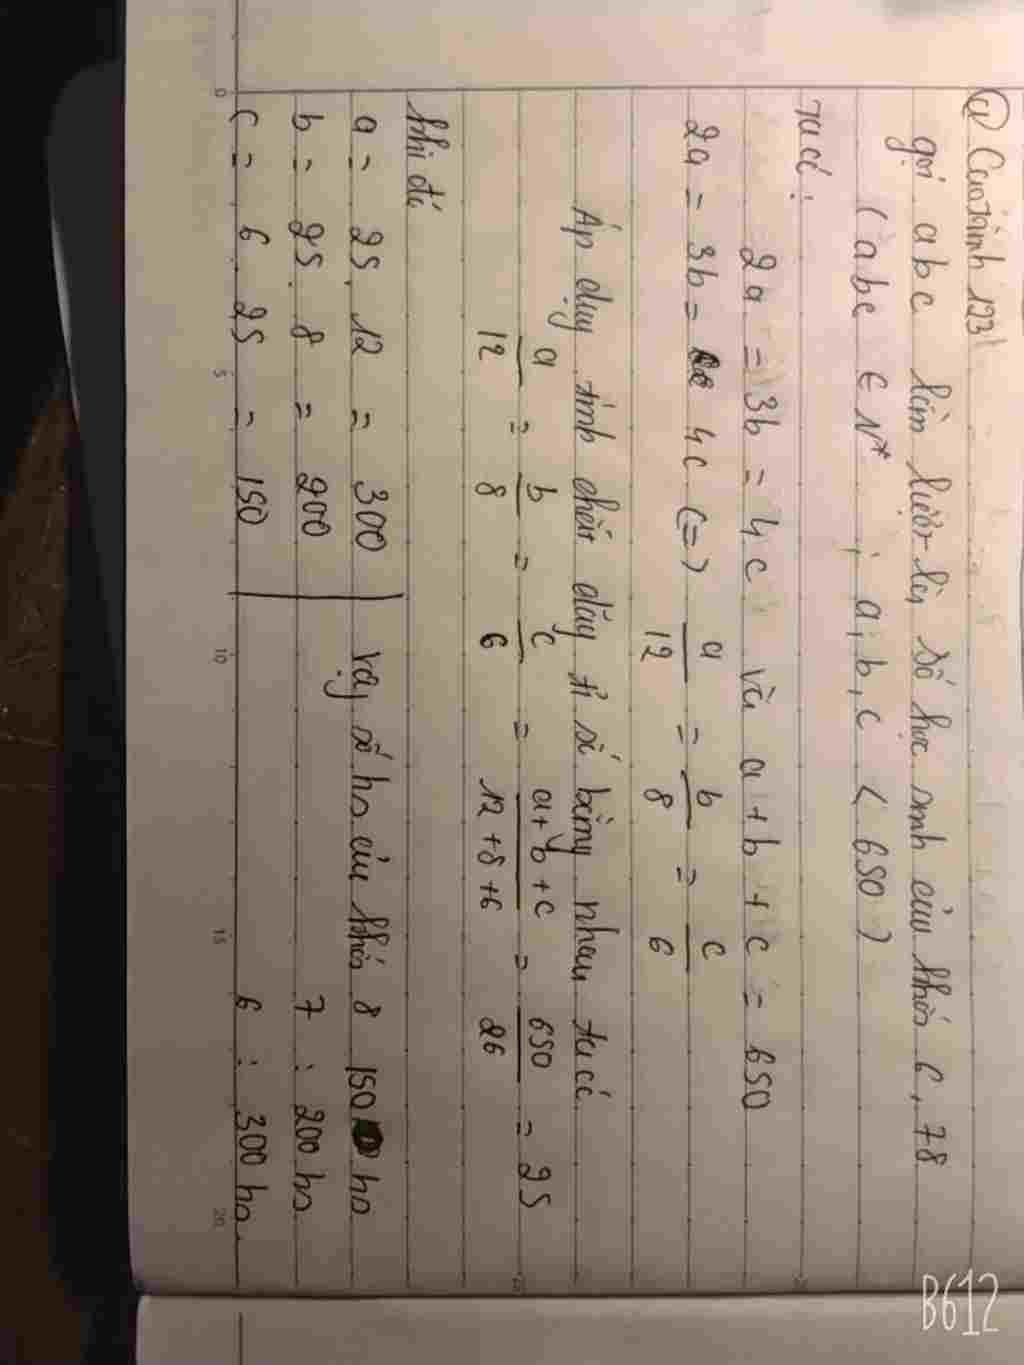 @ Caokinh 123
gọi a b c lần lượt là số học sinh của khối 6, 7 8
( abc ∈ N* ; a, b, c < 650 )
Ta có :
2a = 3b = 4c và a + b + c = 650
2a = 3b = 4c (=) a/12 = b/8 = c/6
Áp dụng tính chất dãy tỉ số bằng nhau ta có
a/12 = b/8 = c/6 = a+b+c/12+8+6 = 650/26 = 25
Khi đó
a = 25. 12 = 300 | vậy số hs của khối 8 150 hs
b = 25. 8 = 200 7 : 200 hs
c = 6. 25 = 150 6 : 300 hs.
0 5 10 15 20
B612